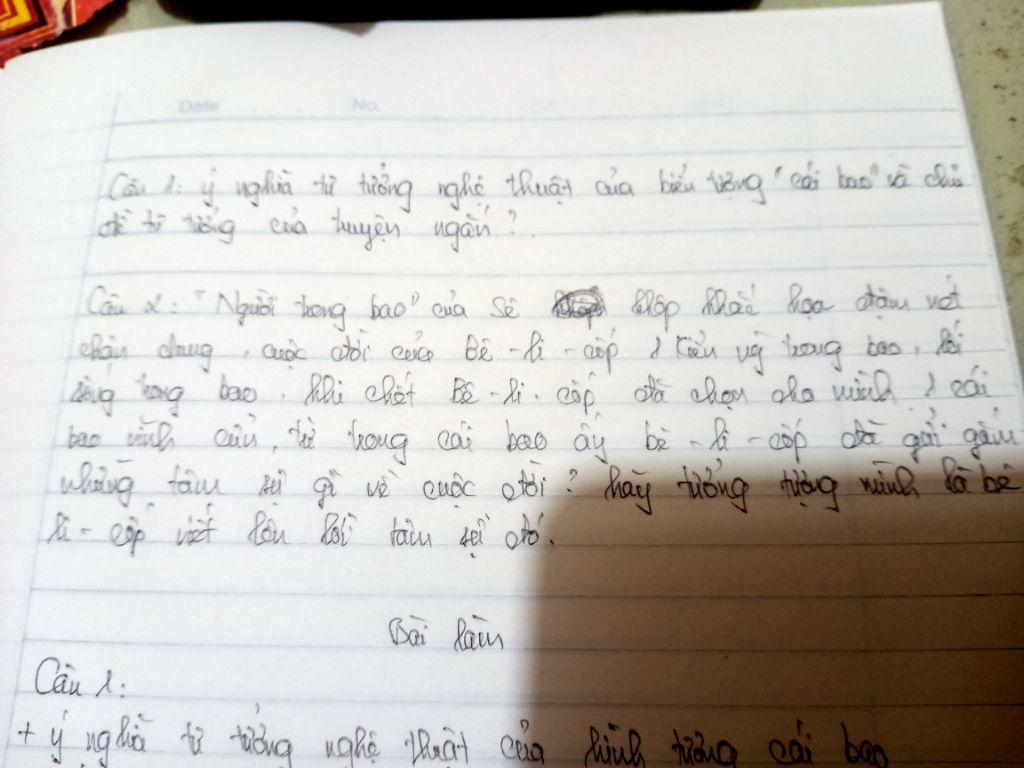 Date No
Câu 1: ý nghĩa tư tưởng nghệ thuật của biểu tượng "cái bao" và chủ
đề tư tưởng của truyện ngắn?
Câu 2: "Người trong bao" của Sê khốp khắc họa đậm nét
chân dung, cuộc đời của Bê-li-cốp 1 kiểu ng trong bao, lối
sống trong bao. Khi chết Bê-li-cốp đã chọn cho mình 1 cái
bao vĩnh cửu, từ trong cái bao ấy bê-li-cốp đã gửi gắm
những tâm sự gì về cuộc đời? hãy tưởng tượng mình là bê
li-cốp viết lên lời tâm sự đó.
Bài làm
Câu 1:
+ ý nghĩa tư tưởng nghệ thuật của hình tượng cái bao